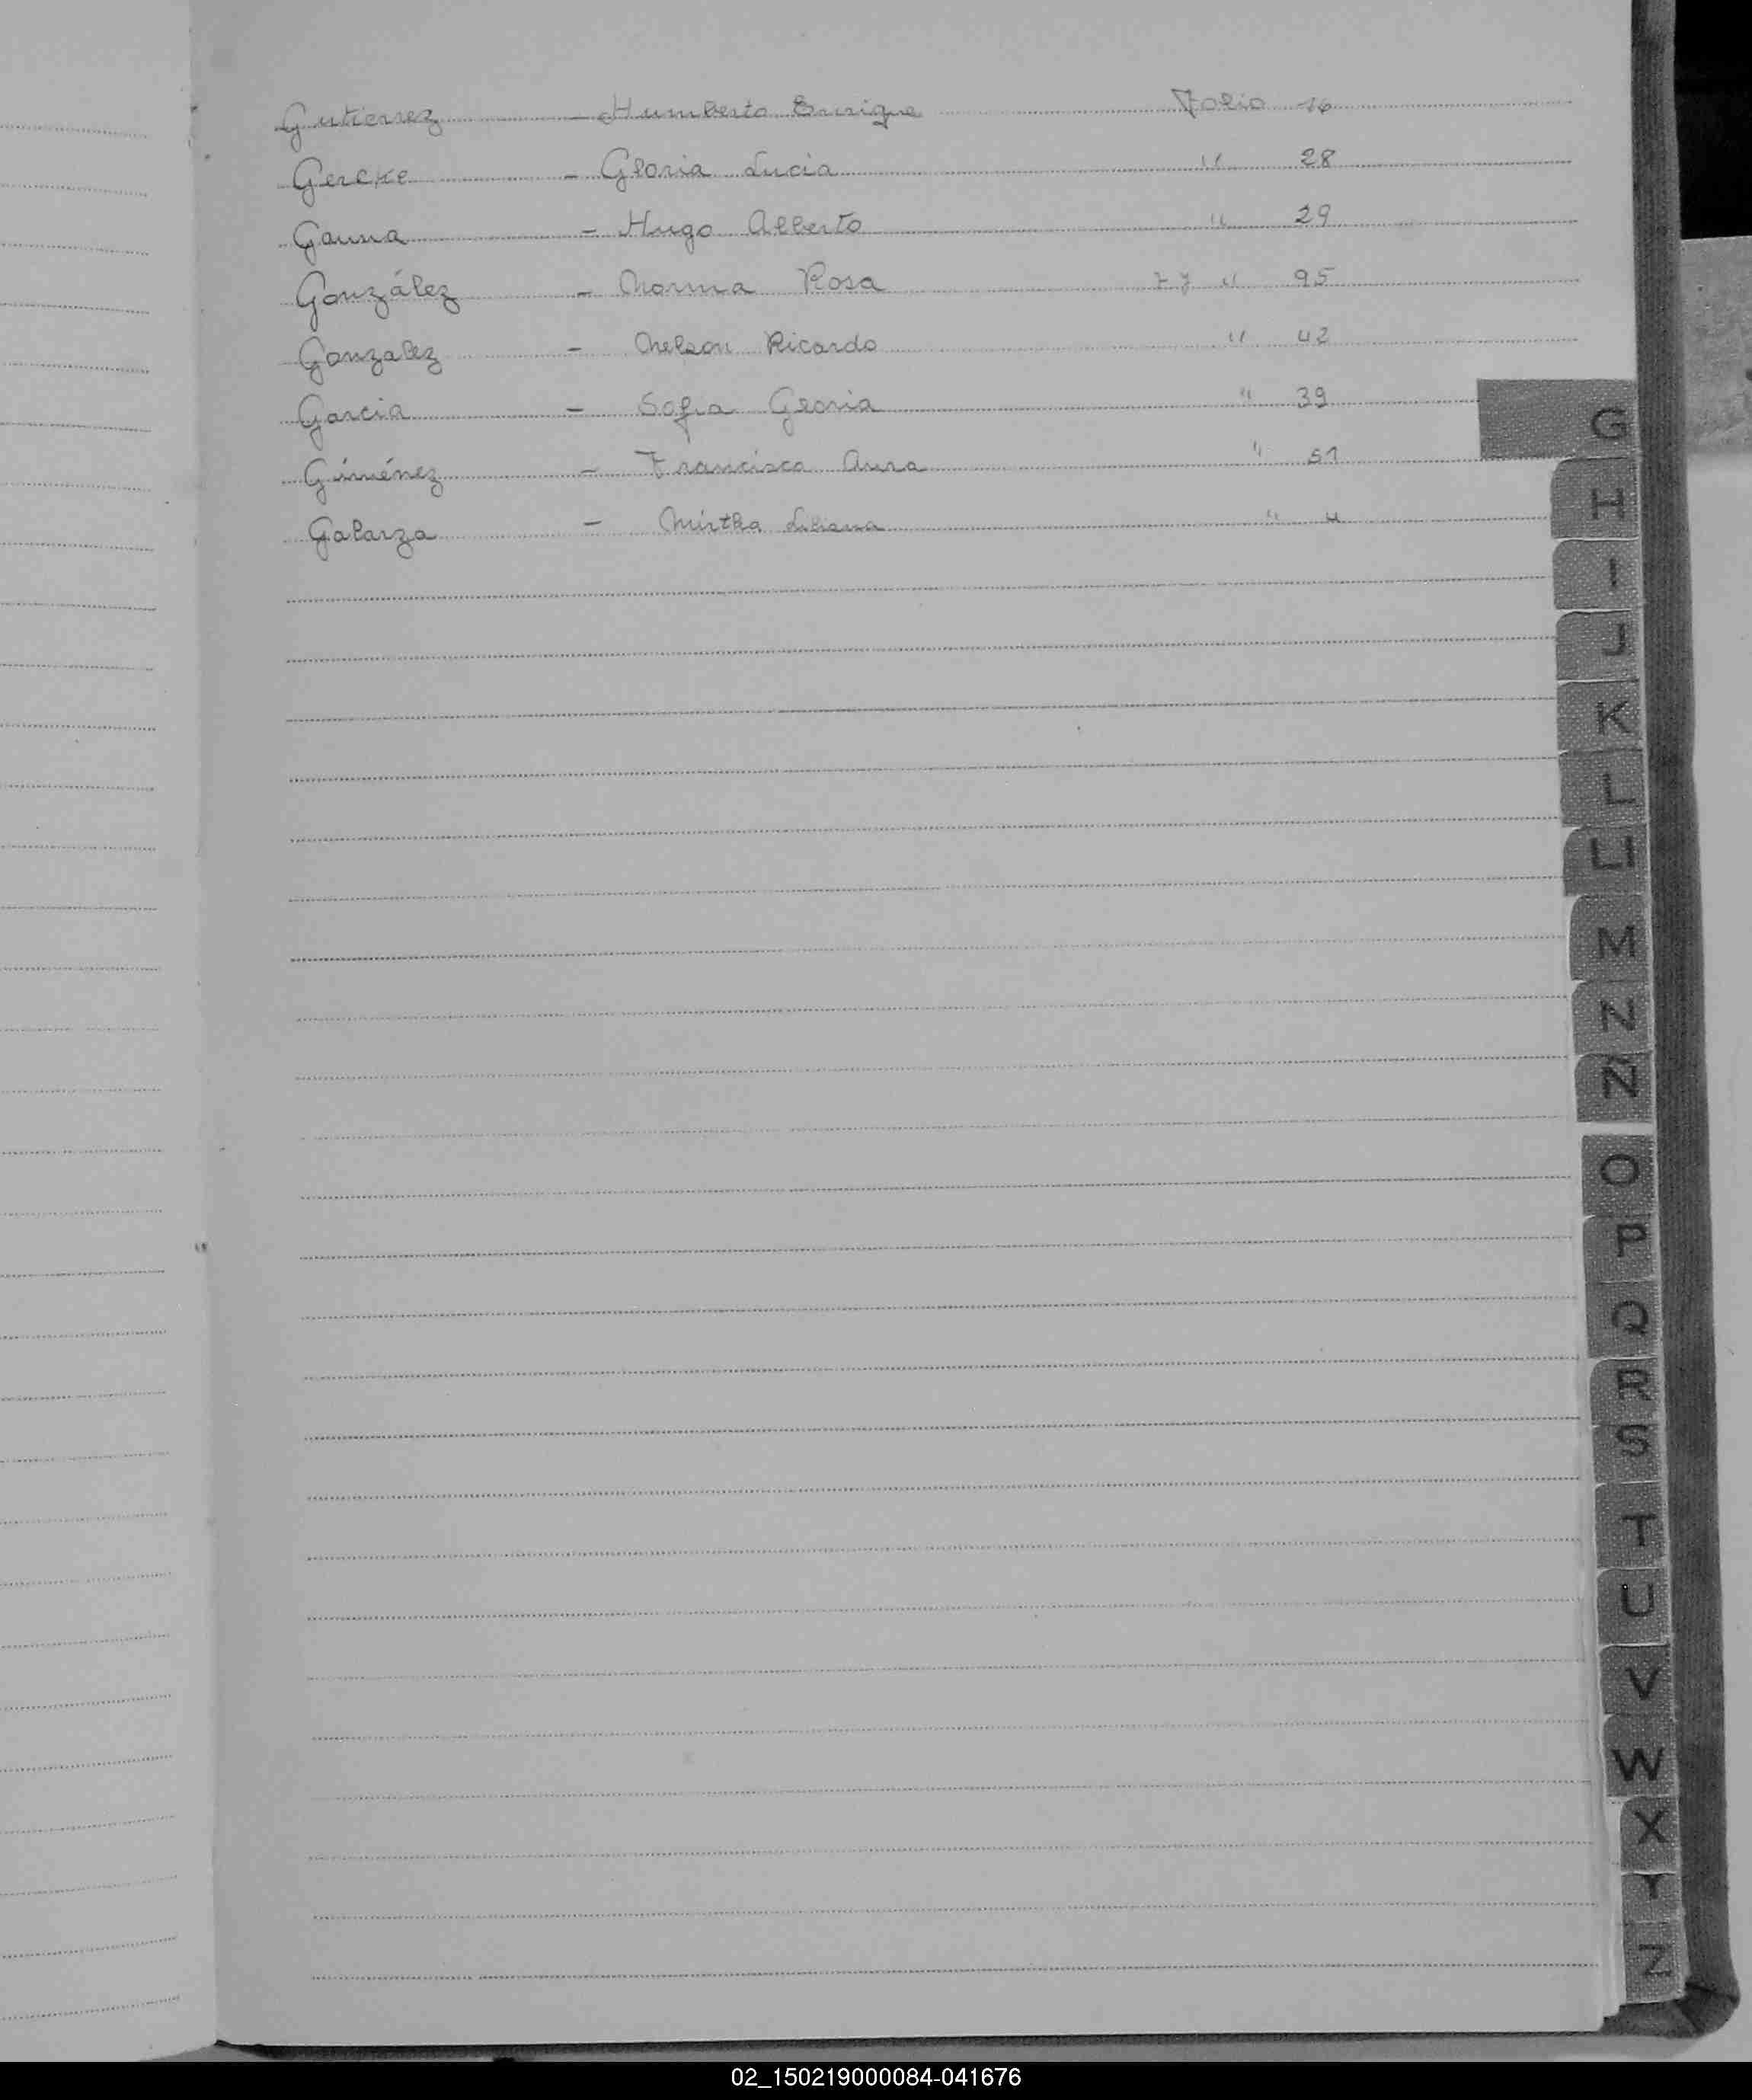 Gutierrez - Humberto Enrique Folio 16
Gereke - Gloria Lucia " 28
Gauna - Hugo Alberto " 29
González - Norma Rosa 77 " 95
Gonzalez - Nelson Ricardo " 42
Garcia - Sofia Gloria " 39
Giménez - Francisca Aura " 51
Galarza - Mirtha Liliana " 4
G
H
I
J
K
L
LI
M
N
Ñ
O
P
Q
R
S
T
U
V
W
X
Y
Z
02_150219000084-041676